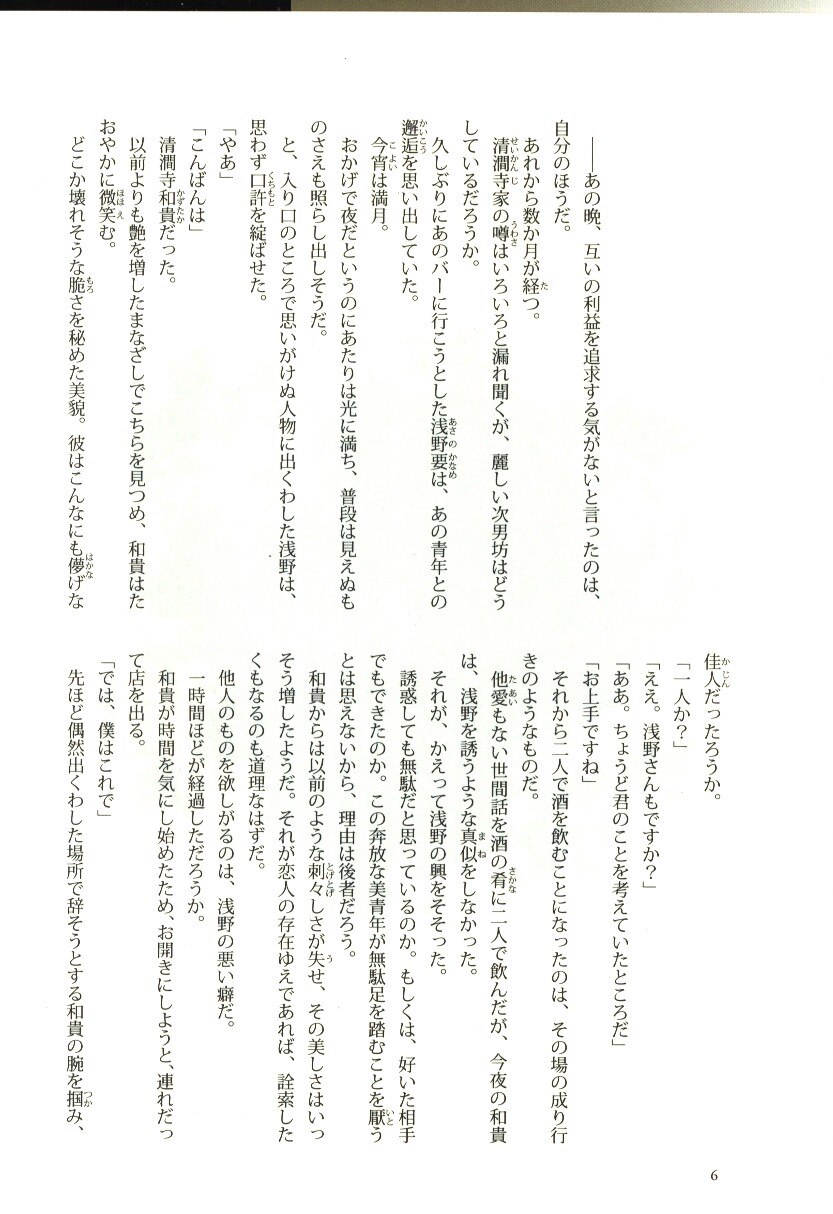 ――あの晩、互いの利益を追求する気がないと言ったのは、
自分のほうだ。
あれから数か月が経つ。
清澗寺家の噂はいろいろと漏れ聞くが、麗しい次男坊はどう
しているだろうか。
久しぶりにあのバーに行こうとした浅野要は、あの青年との
邂逅を思い出していた。
今宵は満月。
おかげで夜だというのにあたりは光に満ち、普段は見えぬも
のさえも照らし出しそうだ。
と、入り口のところで思いがけぬ人物に出くわした浅野は、
思わず口許を綻ばせた。
「やあ」
「こんばんは」
清澗寺和貴だった。
以前よりも艶を増したまなざしでこちらを見つめ、和貴はた
おやかに微笑む。
どこか壊れそうな脆さを秘めた美貌。彼はこんなにも儚げな
佳人だったろうか。
「一人か？」
「ええ。浅野さんもですか？」
「ああ。ちょうど君のことを考えていたところだ」
「お上手ですね」
それから二人で酒を飲むことになったのは、その場の成り行
きのようなものだ。
他愛もない世間話を酒の肴に二人で飲んだが、今夜の和貴
は、浅野を誘うような真似をしなかった。
それが、かえって浅野の興をそそった。
誘惑しても無駄だと思っているのか。もしくは、好いた相手
でもできたのか。この奔放な美青年が無駄足を踏むことを厭う
とは思えないから、理由は後者だろう。
和貴からは以前のような刺々しさが失せ、その美しさはいっ
そう増したようだ。それが恋人の存在ゆえであれば、詮索した
くもなるのも道理なはずだ。
他人のものを欲しがるのは、浅野の悪い癖だ。
一時間ほどが経過しただろうか。
和貴が時間を気にし始めたため、お開きにしようと、連れだっ
て店を出る。
「では、僕はこれで」
先ほど偶然出くわした場所で辞そうとする和貴の腕を掴み、
6